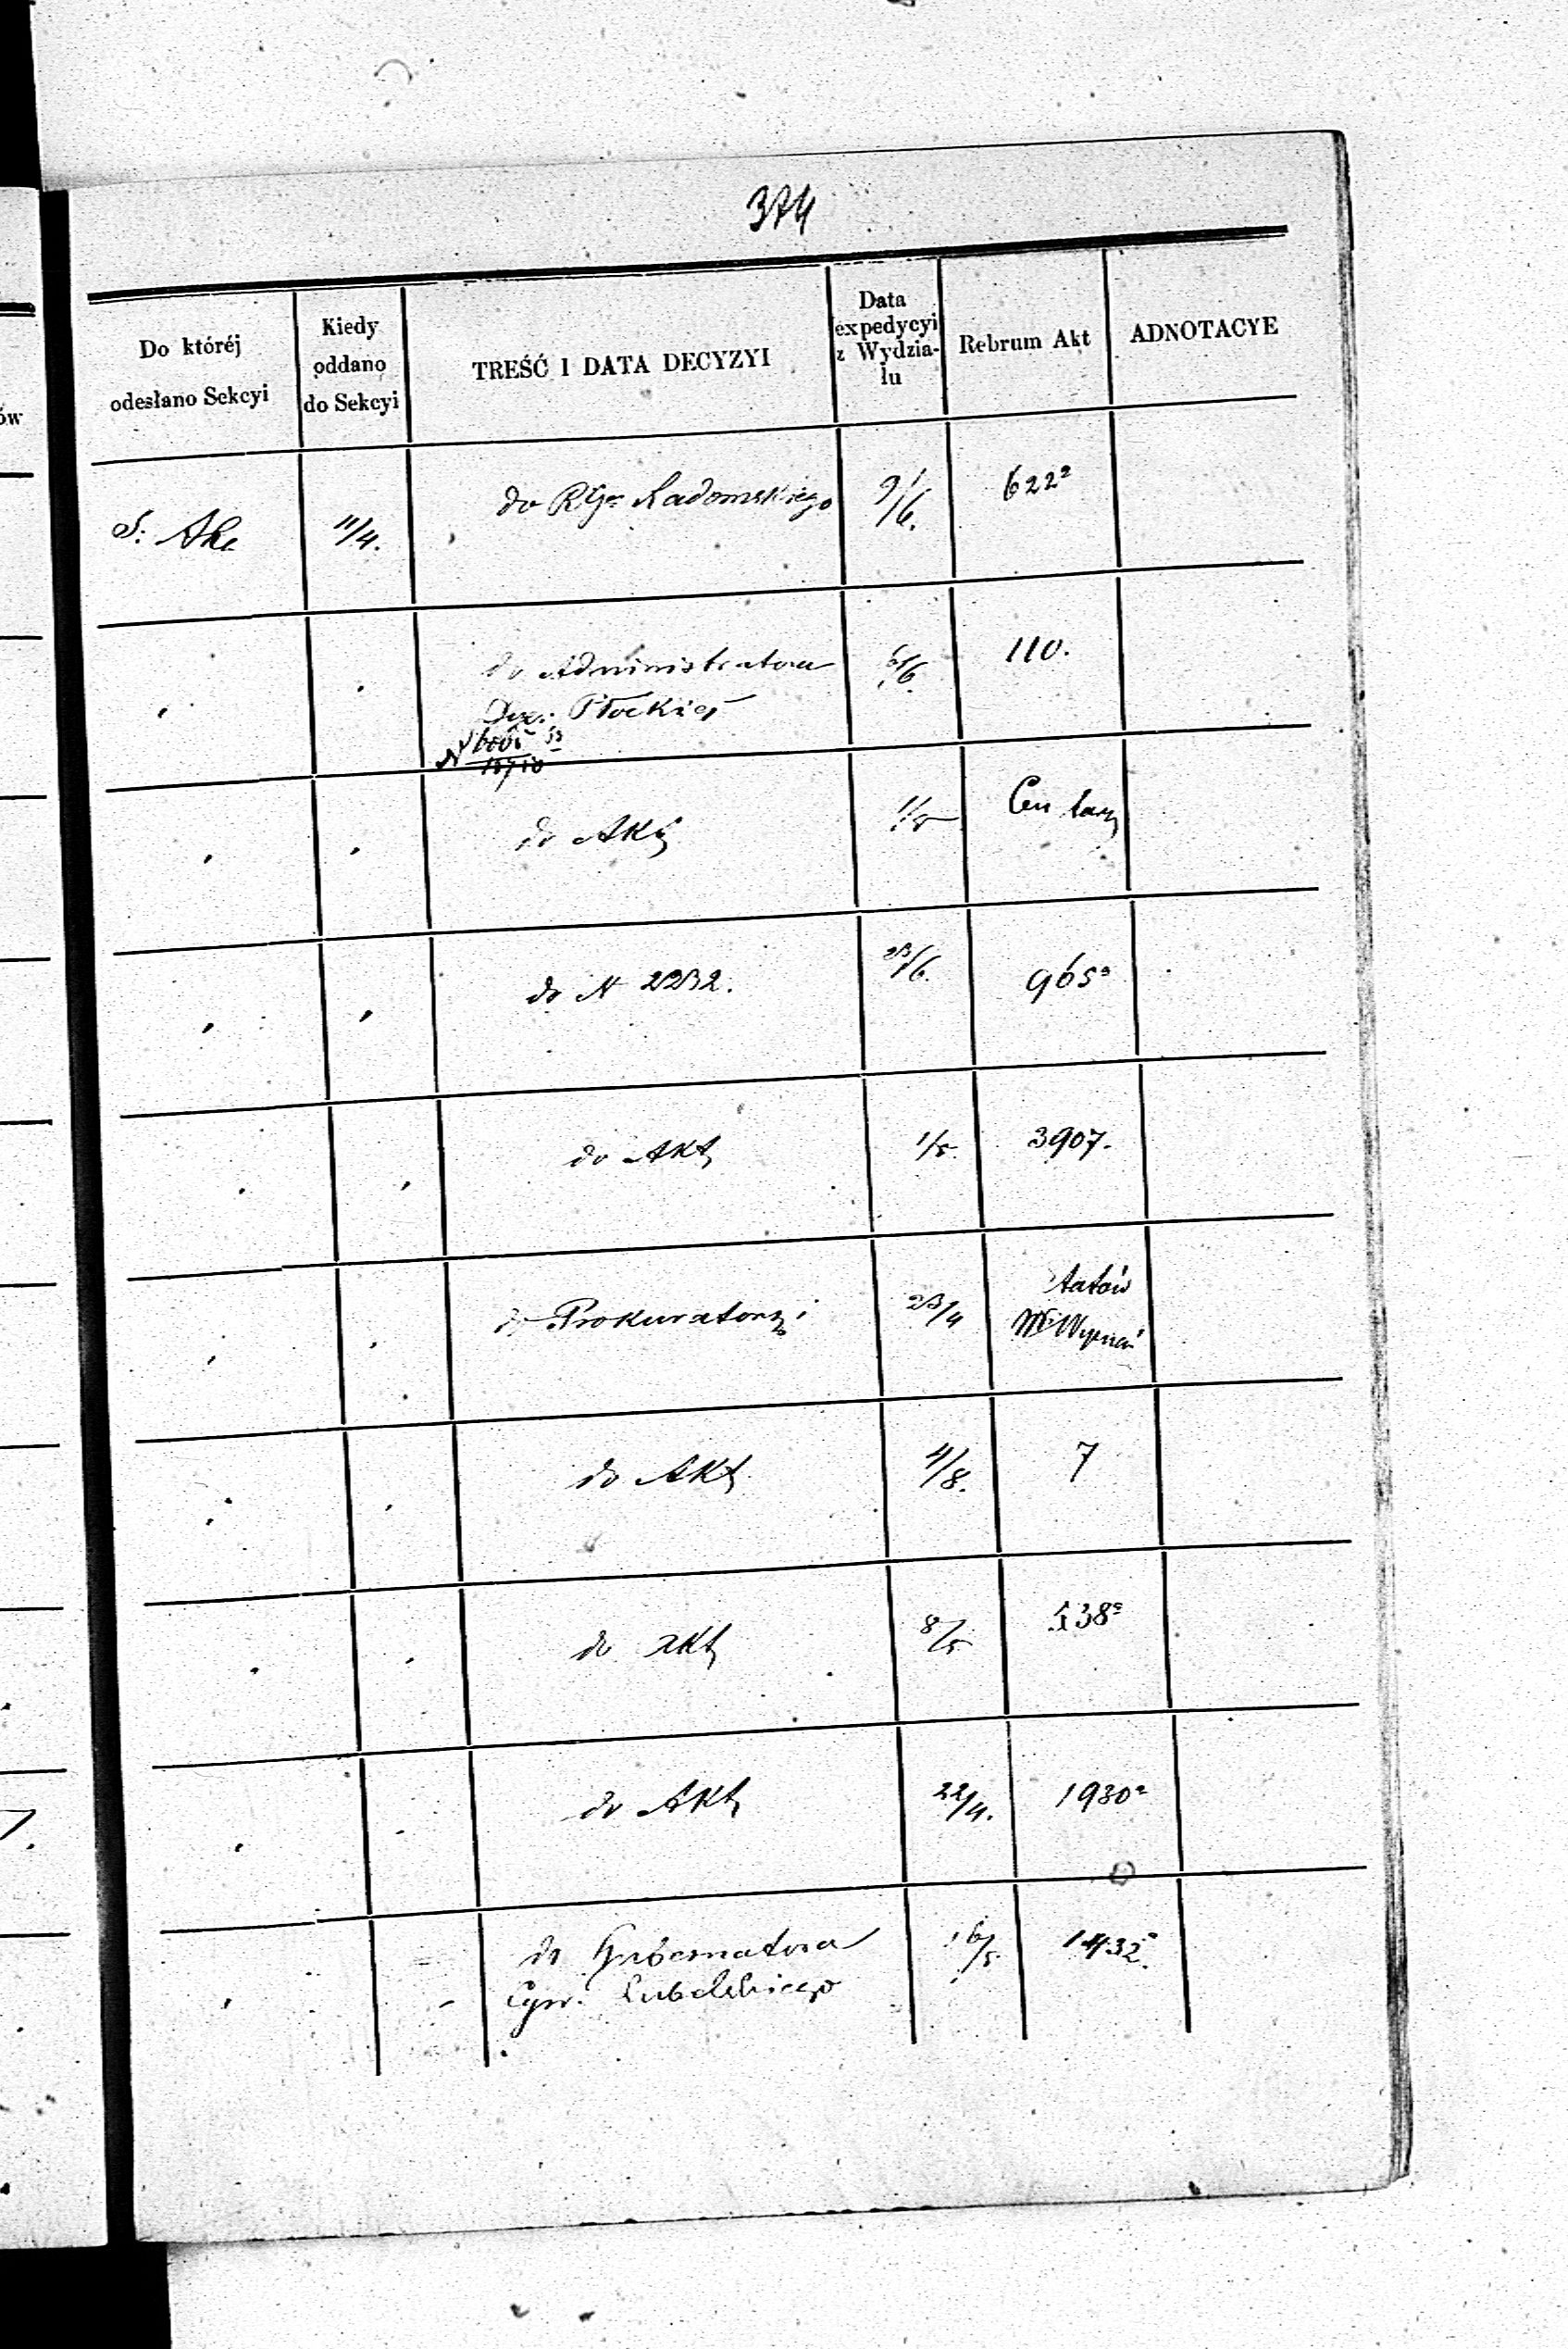 374
Do któréj
odesłano Sekcyi
Kiedy
oddano
do Sekcyi
TREŚĆ I DATA DECYZYI
Data
expedycyi
z Wydzia-
łu
Rebrum Akt
ADNOTACYE
ów
11/4.
do Radomskiego
9/6.
622
do Administratora
Płockiej
/6
110.
do Akt
1/5
do N 2232.
23/6.
965
do Akt
1/5.
3907.
do Prokuratoryi
23/4
do Akt
4/8.
7
do Akt
8/5
538
do Akt
22/4.
1930
do Gubernatora
Cyw. Lubelskiego
16/5
1432